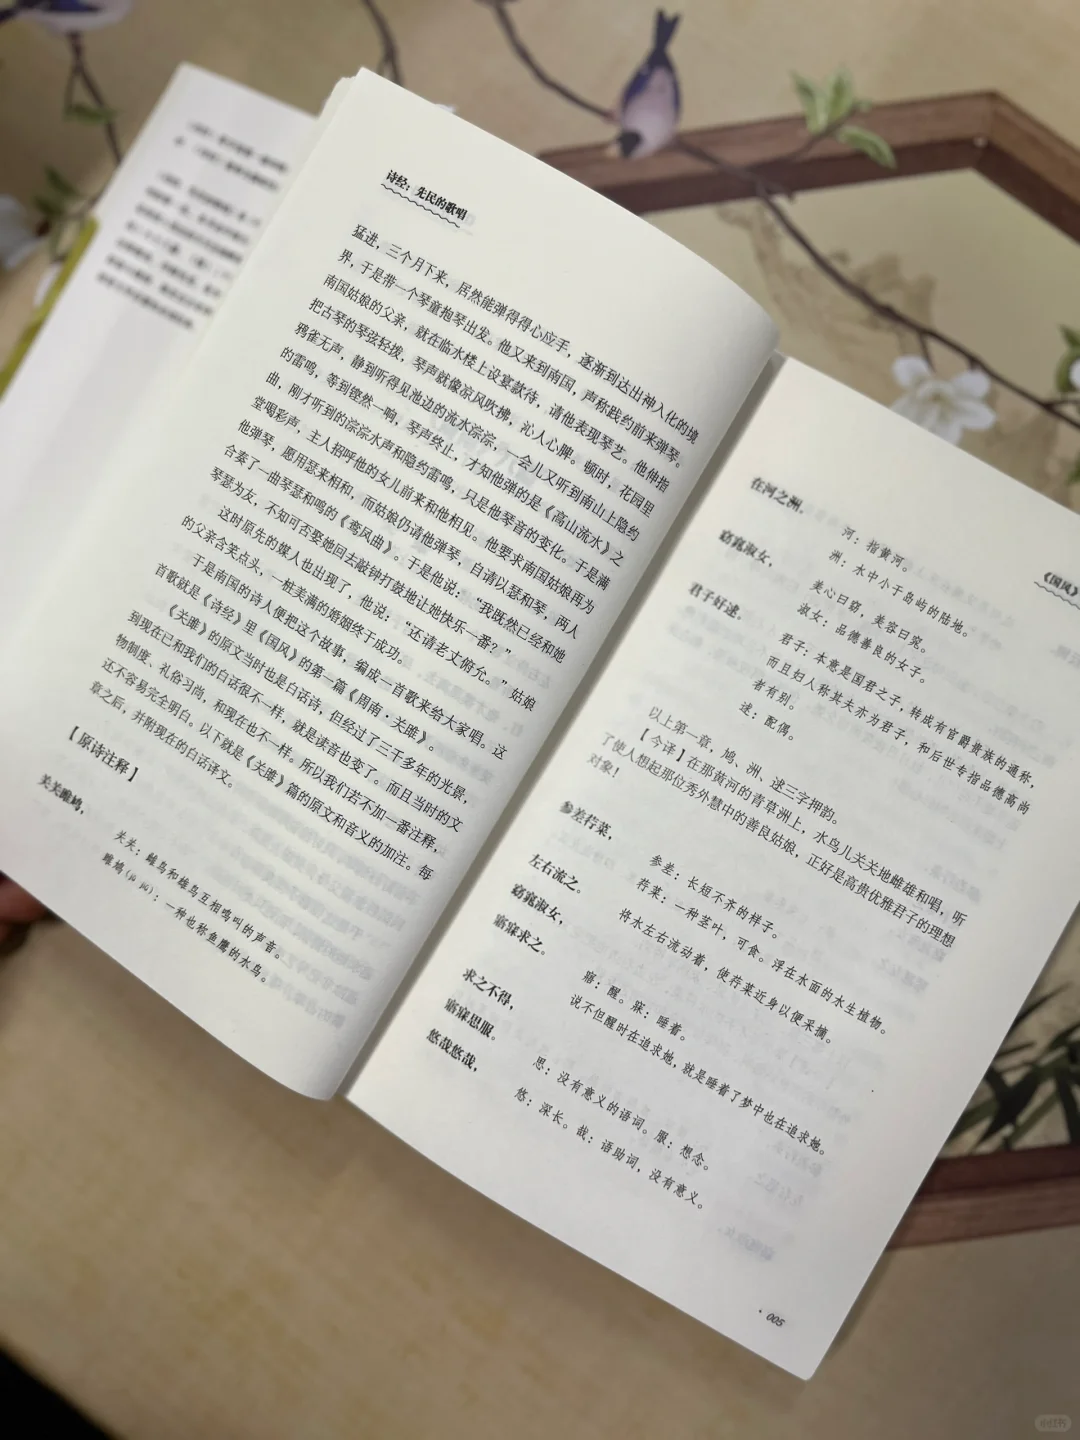 诗经：先民的歌唱
猛进，三个月下来，居然能弹得得心应手，逐渐到达出神入化的境
界，于是带一个琴童抱琴出发。他又来到南国，声称践约前来弹琴。
南国姑娘的父亲，就在临水楼上设宴款待，请他表现琴艺。他伸指
把古琴的琴弦轻拨，琴声就像凉风吹拂，沁人心脾。顿时，花园里
鸦雀无声，静到听得见池边的流水淙淙，一会儿又听到南山上隐约
的雷鸣，等到铿然一响，琴声终止，才知他弹的是《高山流水》之
曲，刚才听到的淙淙水声和隐约雷鸣，只是他琴音的变化。于是满
堂喝彩声，主人招呼他的女儿前来和他相见。他要求南国姑娘再为
他弹琴，愿用瑟来相和，而姑娘仍请他弹琴，自请以瑟和琴，两人
合奏了一曲琴瑟和鸣的《鸾凤曲》。于是他说：“我既然已经和她
琴瑟为友，不知可否娶她回去敲钟打鼓地让她快乐一番？”
这时原先的媒人也出现了，他说：“还请老丈俯允。”姑娘
的父亲含笑点头，一桩美满的婚姻终于成功。
于是南国的诗人便把这个故事，编成一首歌来给大家唱。这
首歌就是《诗经》里《国风》的第一篇《周南·关雎》。
《关雎》的原文当时也是白话诗，但经过了三千多年的光景，
到现在已和我们的白话很不一样，就是读音也变了。而且当时的文
物制度、礼俗习尚，和现在也不一样。所以我们若不加一番注释，
还不容易完全明白。以下就是《关雎》篇的原文和音义的加注。每
章之后，并附现在的白话译文。
【原诗注释】
关关雎鸠，
关关：雌鸟和雄鸟互相鸣叫的声音。
雎鸠（jū jiū）：一种也称鱼鹰的水鸟。
《国风》
在河之洲。
河：指黄河。
洲：水中小于岛屿的陆地。
窈窕淑女，
美心曰窈，美容曰窕。
淑女：品德善良的女子。
君子好逑。
君子：本意是国君之子，转成有官爵贵族的通称，
而且妇人称其夫亦为君子，和后世专指品德高尚
者有别。
逑：配偶。
以上第一章，鸠、洲、逑三字押韵。
【今译】在那黄河的青草洲上，水鸟儿关关地雌雄和唱，听
了使人想起那位秀外慧中的善良姑娘，正好是高贵优雅君子的理想
对象！
参差荇菜，
参差：长短不齐的样子。
荇菜：一种茎叶，可食。浮在水面的水生植物。
左右流之。
将水左右流动着，使荇菜近身以便采摘。
窈窕淑女，
寤寐求之。
寤：醒。寐：睡着。
说不但醒时在追求她，就是睡着了梦中也在追求她。
求之不得，
寤寐思服。
思：没有意义的语词。服：想念。
悠哉悠哉，
悠：深长。哉：语助词，没有意义。
· 005
小红书